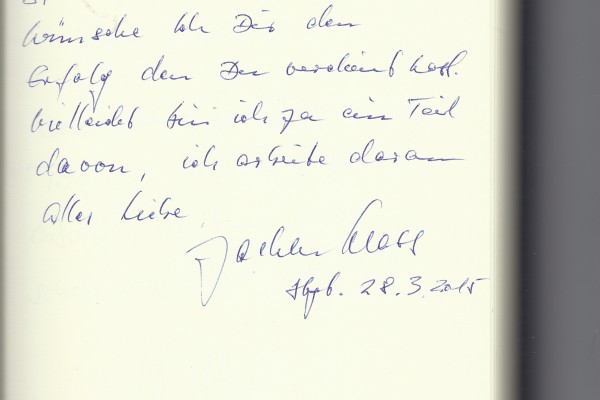 wünsche ich Dir den
Erfolg den Du verdient hast.
Vielleicht bin ich ja ein Teil
davon, ich arbeite daran
Alles Liebe
28.3.2015